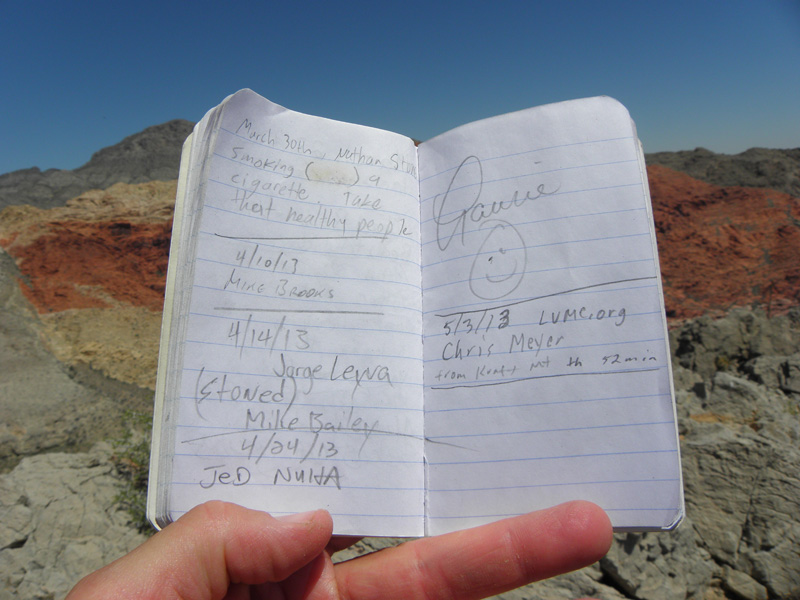 March 30th, Nathan Stone
Smoking ( ) a
cigarette. Take
that healthy people
4/10/13
Mike Brooks
4/14/13
Jorge Leyva
(Stoned)
Mike Bailey
4/24/13
JED
5/3/13 LVMC.org
Chris Meyer
from Kraft Mt 1h 52min